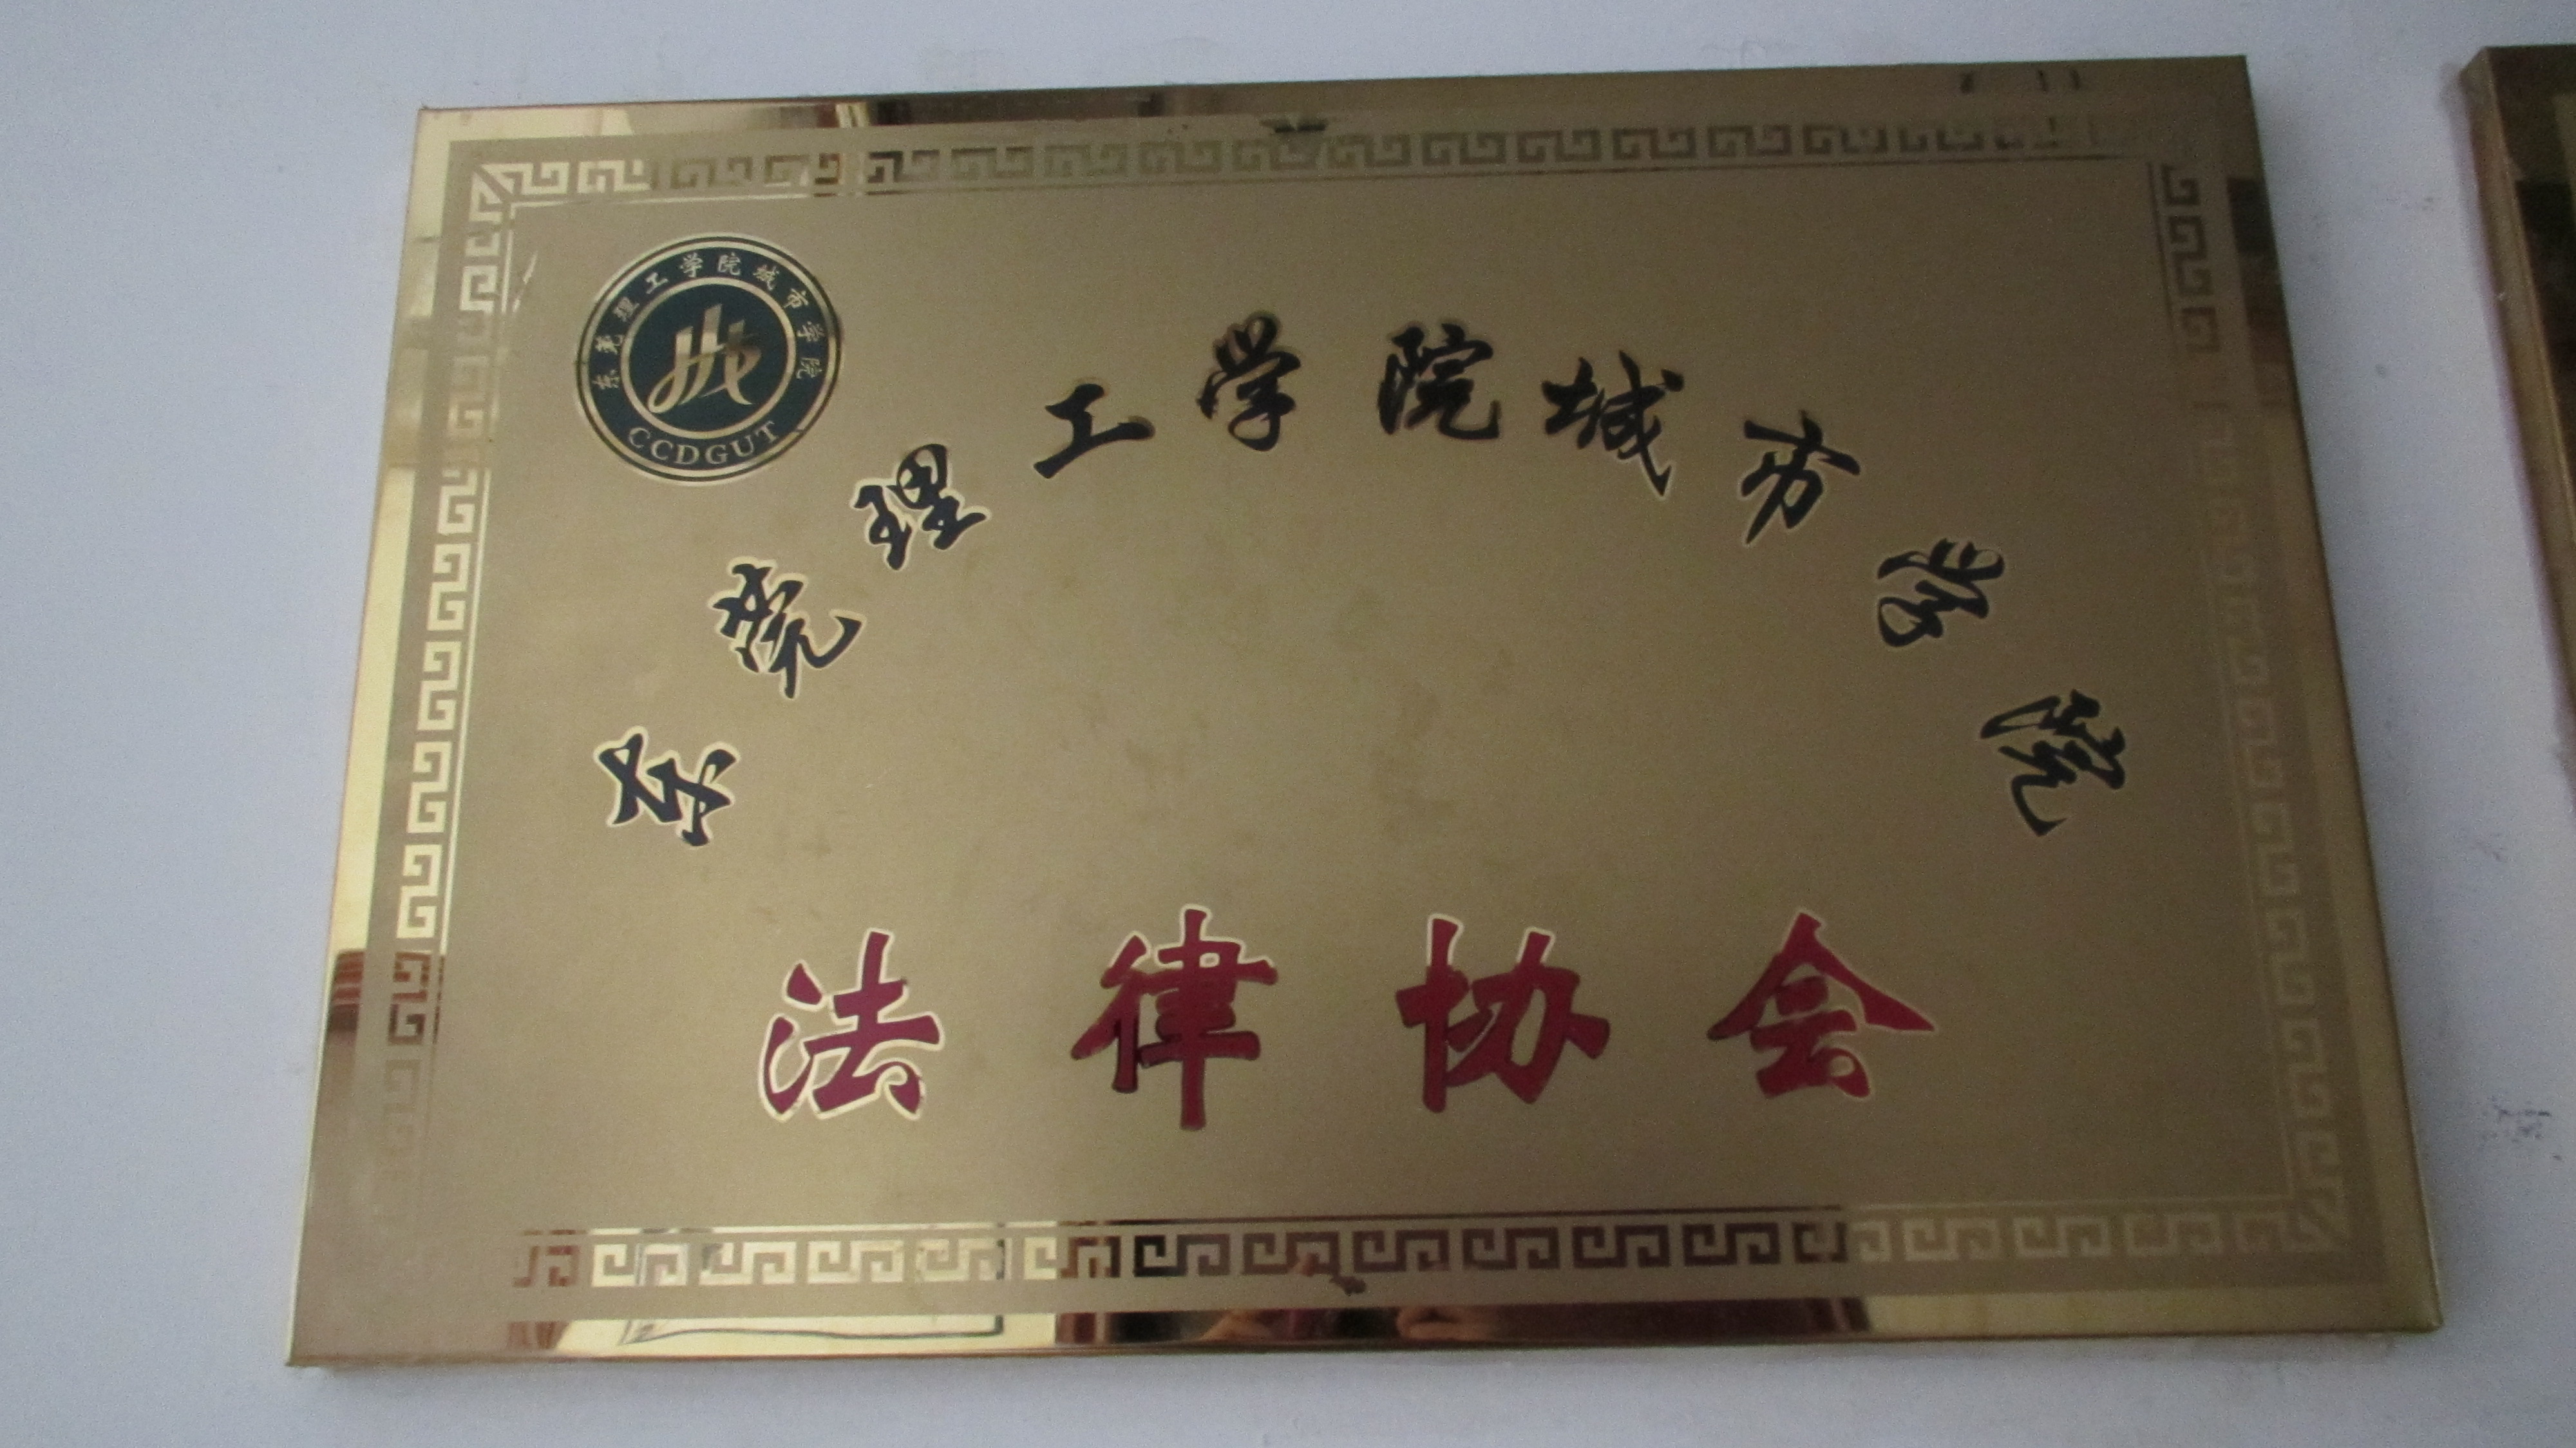 东莞理工学院城市学院
CCDGUT
东莞理工学院城市学院
法律协会